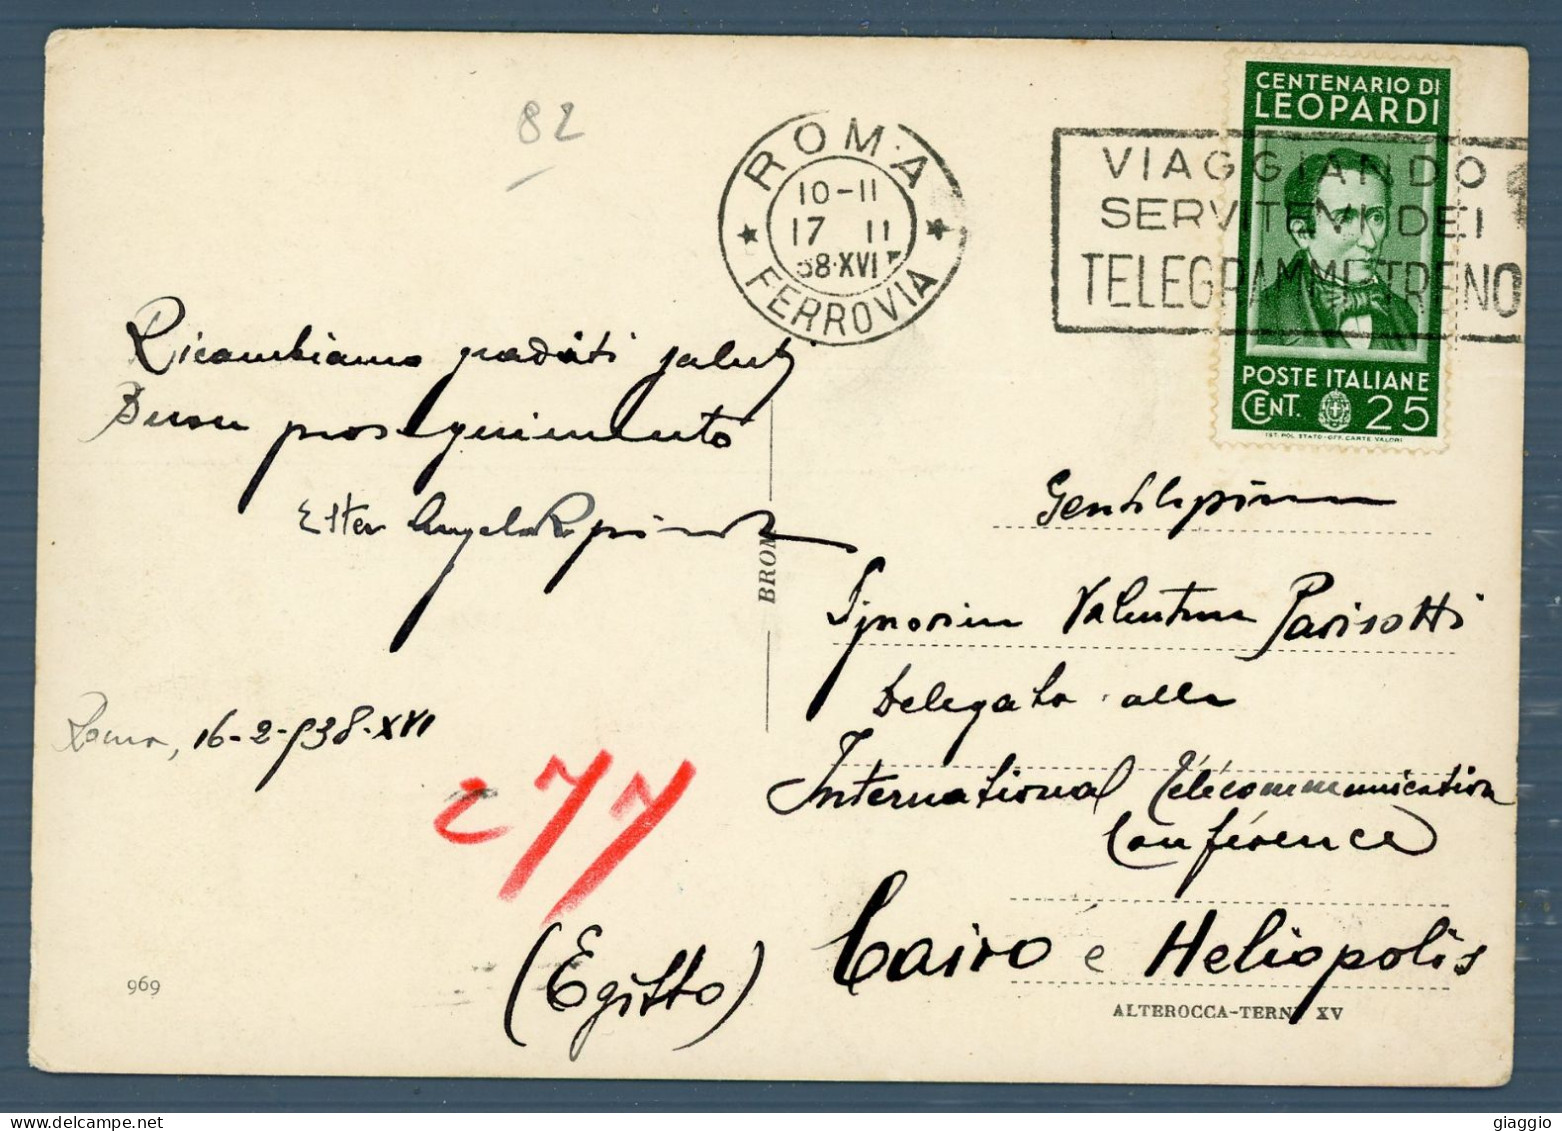 82
ROMA
10-11
17 11
38·XVI
FERROVIA
VIAGGIANDO
SERVITEVI DEI
TELEGRAMMI TRENO
CENTENARIO DI
LEOPARDI
POSTE ITALIANE
CENT. 25
IST. POL. STATO-OFF. CARTE VALORI
Ricambiamo graditi saluti
Buon proseguimento
Ester Angela
BROM
Roma, 16-2-938-XVI
77
969
Gentilissima
Signorina Valentina Parisotti
Delegata alla
International Télécommunication
Conférence
Cairo e Heliopolis
(Egitto)
ALTEROCCA-TERNI XV
giaggio